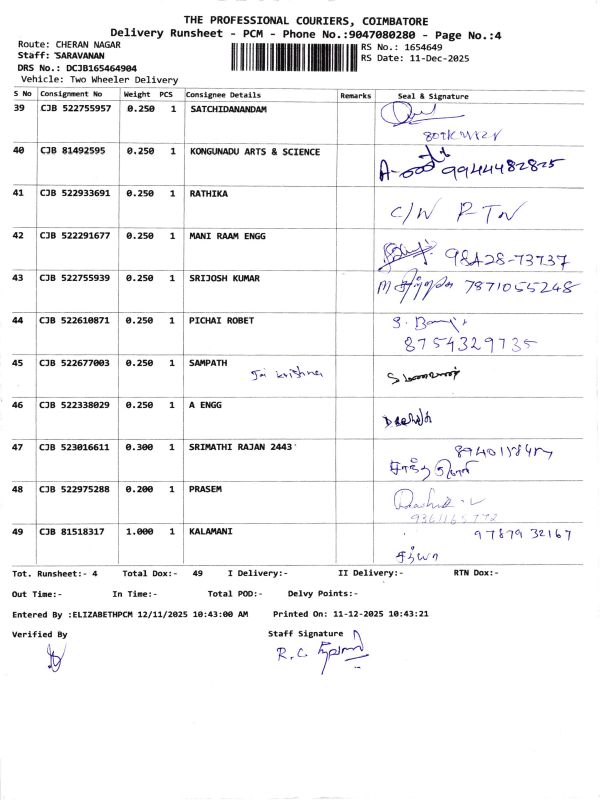 THE PROFESSIONAL COURIERS, COIMBATORE
Delivery Runsheet - PCM - Phone No.:9047080280 - Page No.:4
Route: CHERAN NAGAR
RS No.: 1654649
Staff: SARAVANAN
RS Date: 11-Dec-2025
DRS No.: DCJB165464904
Vehicle: Two Wheeler Delivery
S No Consignment No Weight PCS Consignee Details Remarks Seal & Signature
39 CJB 522755957 0.250 1 SATCHIDANANDAM
40 CJB 81492595 0.250 1 KONGUNADU ARTS & SCIENCE
9944482825
41 CJB 522933691 0.250 1 RATHIKA
C/N RTN
42 CJB 522291677 0.250 1 MANI RAAM ENGG
98428-73737
43 CJB 522755939 0.250 1 SRIJOSH KUMAR
7871055248
44 CJB 522610871 0.250 1 PICHAI ROBET
8754329735
45 CJB 522677003 0.250 1 SAMPATH
Jai krishna
46 CJB 522338029 0.250 1 A ENGG
47 CJB 523016611 0.300 1 SRIMATHI RAJAN 2443
48 CJB 522975288 0.200 1 PRASEM
9361165772
49 CJB 81518317 1.000 1 KALAMANI
97879 32167
Tot. Runsheet:- 4 Total Dox:- 49 I Delivery:- II Delivery:- RTN Dox:-
Out Time:- In Time:- Total POD:- Delvy Points:-
Entered By :ELIZABETHPCM 12/11/2025 10:43:00 AM Printed On: 11-12-2025 10:43:21
Verified By Staff Signature
R.C.